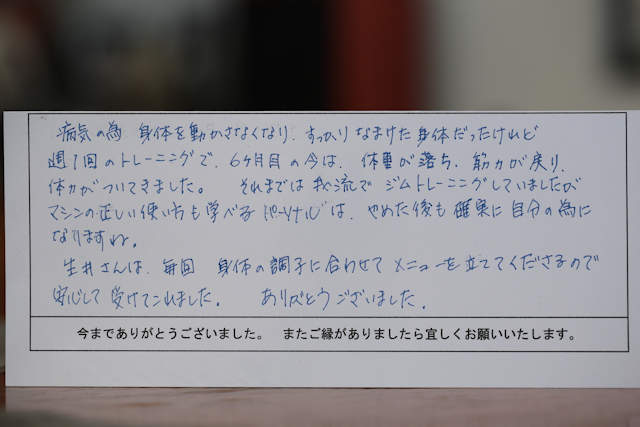 病気の為 身体を動かさなくなり、すっかりなまけた身体だったけれど
週1回のトレーニングで、6ヶ月目の今は、体重が落ち、筋力が戻り、
体力がついてきました。 それまでは我流でジムトレーニングしていましたが
マシンの正しい使い方も学べるパーソナルは、やめた後も確実に自分の為に
なりますね。
生井さんは、毎回 身体の調子に合わせてメニューを立ててくださるので
安心して受けてこれました。 ありがとうございました。
今までありがとうございました。 またご縁がありましたら宜しくお願いいたします。